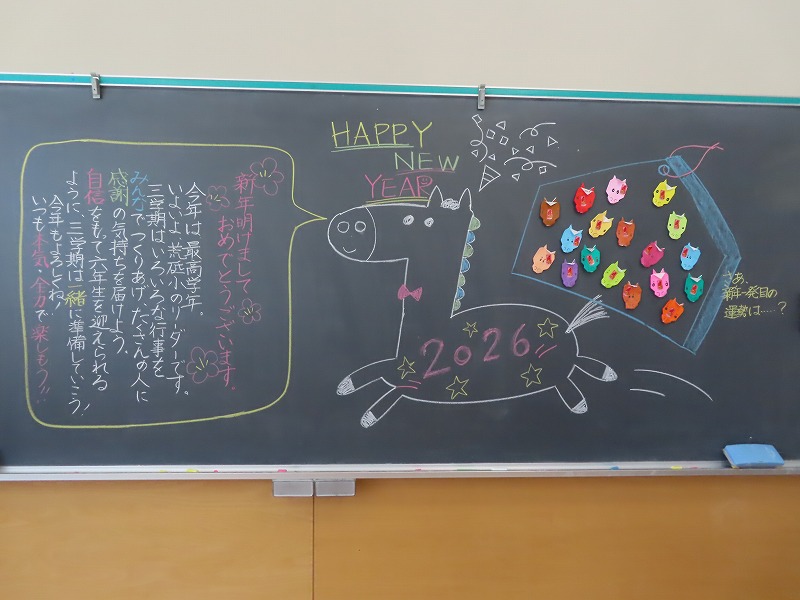 新年明けまして
おめでとうございます。
今年は最高学年。
いよいよ荒庭小のリーダーです。
三学期はいろいろな行事を
みんなでつくりあげ、たくさんの人に
感謝の気持ちを届けよう。
自信をもって六年生を迎えられる
ように、三学期は一緒に準備していこう！
今年もよろしくね！！
いつも本気・全力で楽しもう！！
HAPPY
NEW
YEAR
2026
さあ、
新年一発目の
運勢は……？